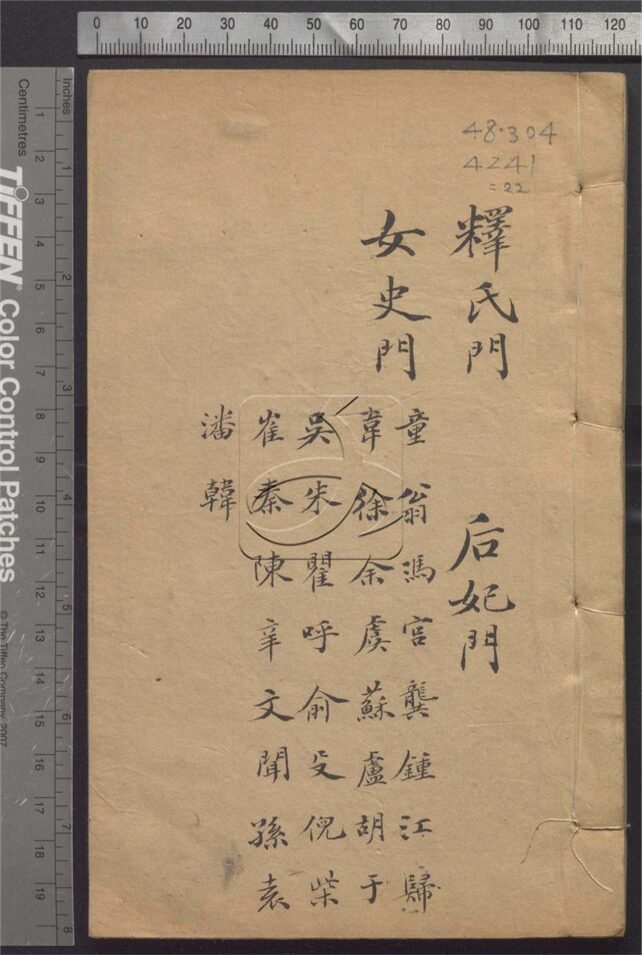 0 10 20 30 40 50 60 70 80 90 100 110 120
inches
1 2 3 4 5 6 7 8
Centimetres
1 2 3 4 5 6 7 8 9 10 11 12 13 14 15 16 17 18 19
TIFFEN® Color Control Patches
© The Tiffen Company, 2007
48.304
4241
=22
釋氏門
后妃門
女史門
童翁馮宮龔鍾江歸
韋徐余虞蘇盧胡于
吳朱瞿呼俞殳倪柴
崔秦陳辛文聞孫袁
潘韓